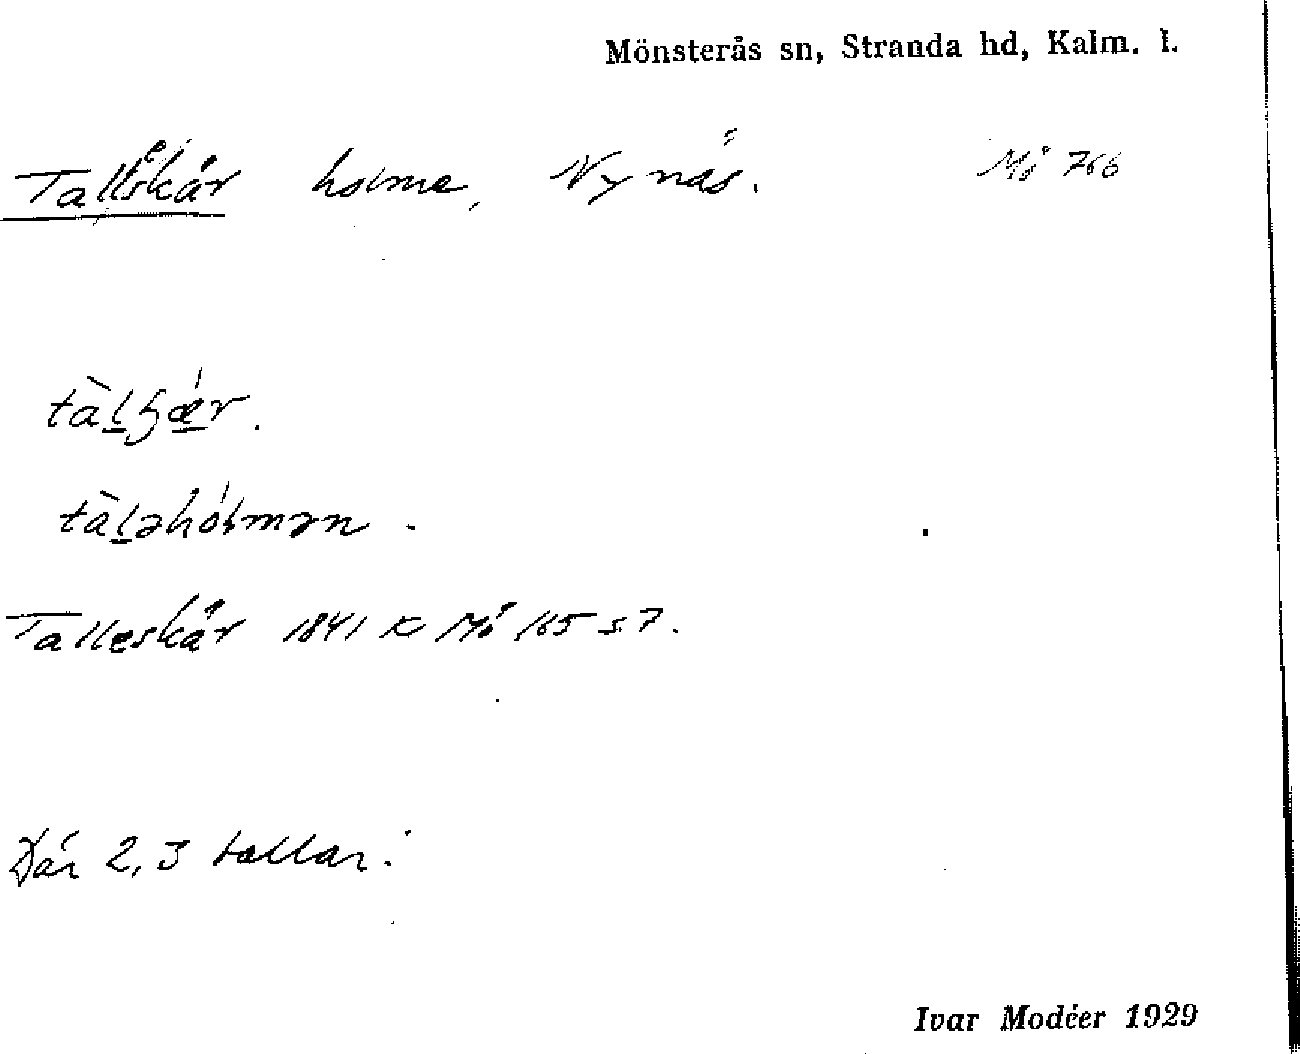 Mönsterås sn, Stranda hd, Kalm. l.
Tallskär holme, Nynäs. Mö 766
tàlʒǽr.
tàləhólmən.
Talleskär 1841 K Mö 165 s 7.
Där 2, 3 tallar.
Ivar Modéer 1929